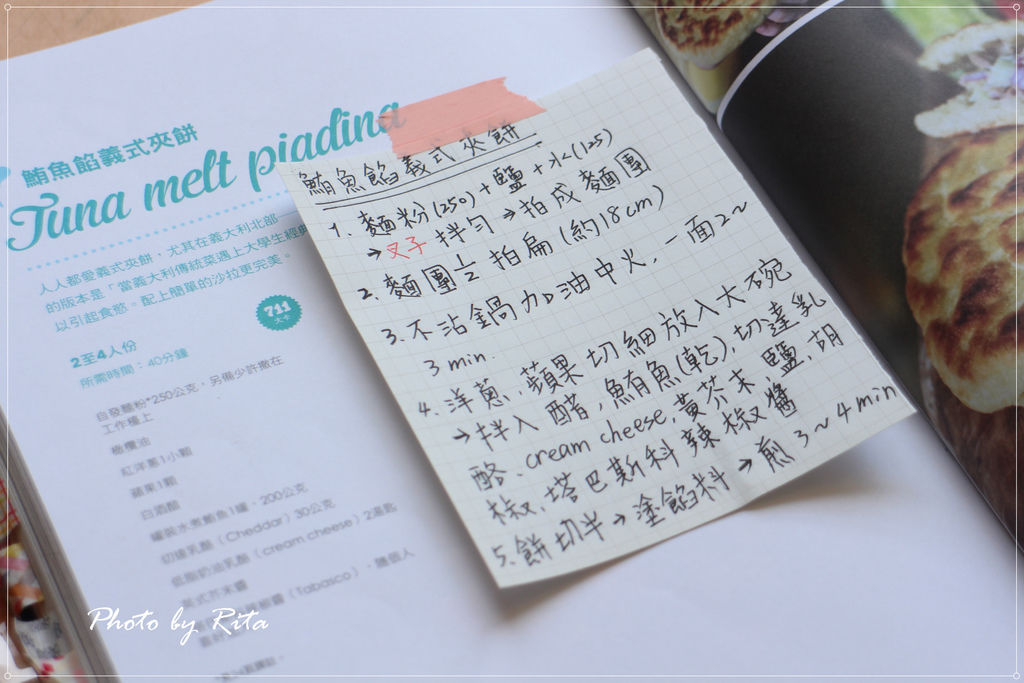 鮪魚餡義式夾餅
Tuna melt piadina
人人都愛義式夾餅，尤其在義大利北部
的版本是「當義大利傳統菜遇上大學生經典
以引起食慾。配上簡單的沙拉更完美。
711
大卡
2至4人份
所需時間：40分鐘
自發麵粉*250公克，另備少許撒在
工作檯上
橄欖油
紅洋蔥1小顆
蘋果1顆
白酒醋
罐裝水煮鮪魚1罐，200公克
切達乳酪（Cheddar）30公克
低脂奶油乳酪（cream cheese）2湯匙
英式芥末醬
（Tabasco），隨個人
鮪魚餡義式夾餅
1. 麵粉(250)+鹽+水(125)
→叉子 拌勻→拍成麵團
2. 麵團1/2 拍扁(約18cm)
3. 不沾鍋加油中火，一面2~
3 min.
4. 洋蔥,蘋果切細放入大碗
→拌入醋,鮪魚(乾),切達乳
酪、cream cheese,黃芥末,鹽,胡
椒,塔巴斯科辣椒醬
5. 餅切半→塗餡料→煎3~4min
Photo by Rita